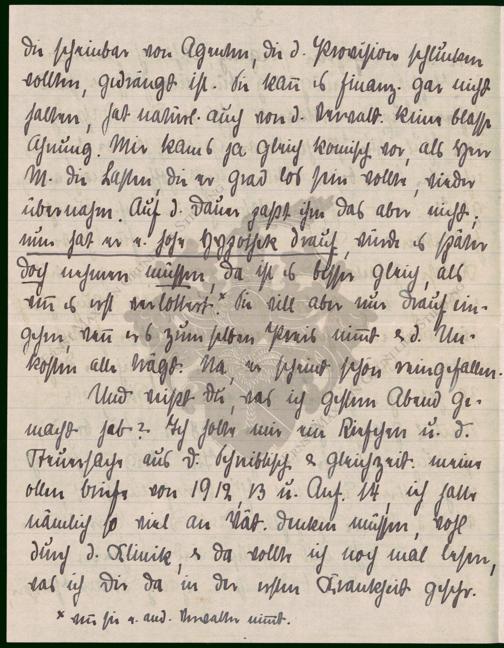 die scheinbar von Agenten, die d. Provision schlucken
wollten, gedrängt ist. Sie kañ es finanz. gar nicht
halten, hat natürl. auch von d. Verwalt. keine blasse
Ahnung. Mir kam's ja gleich komisch vor, als Herr
M. die Lasten, die er grad los sein wollte, wieder
übernahm. Auf d. Dauer paßt ihm das aber nicht;
nun hat er e. hohe Hypothek drauf, würde es später
doch nehmen müssen, da ist es besser gleich, als
weñ es erst verlottert.* Sie will aber nur drauf ein-
gehen, weñ er's zum selben Preis nim̄t & d. Un-
kosten alle trägt. Na, er scheint schön reingefallen.
Und weißt Du, was ich gestern Abend ge-
macht hab? Ich holte mir ein Kistchen u. d.
Steuersache aus d. Schreibtisch & gleichzeit. meine
ollen Briefe von 1912, 13 u. Anf. 14, ich hatte
nämlich so viel an Vat. denken müssen, wohl
durch d. Klinik, & da wollte ich noch mal lesen,
was ich Dir da in der ersten Krankheit geschr.
* weñ sie e. and. Verwalter nim̄t.